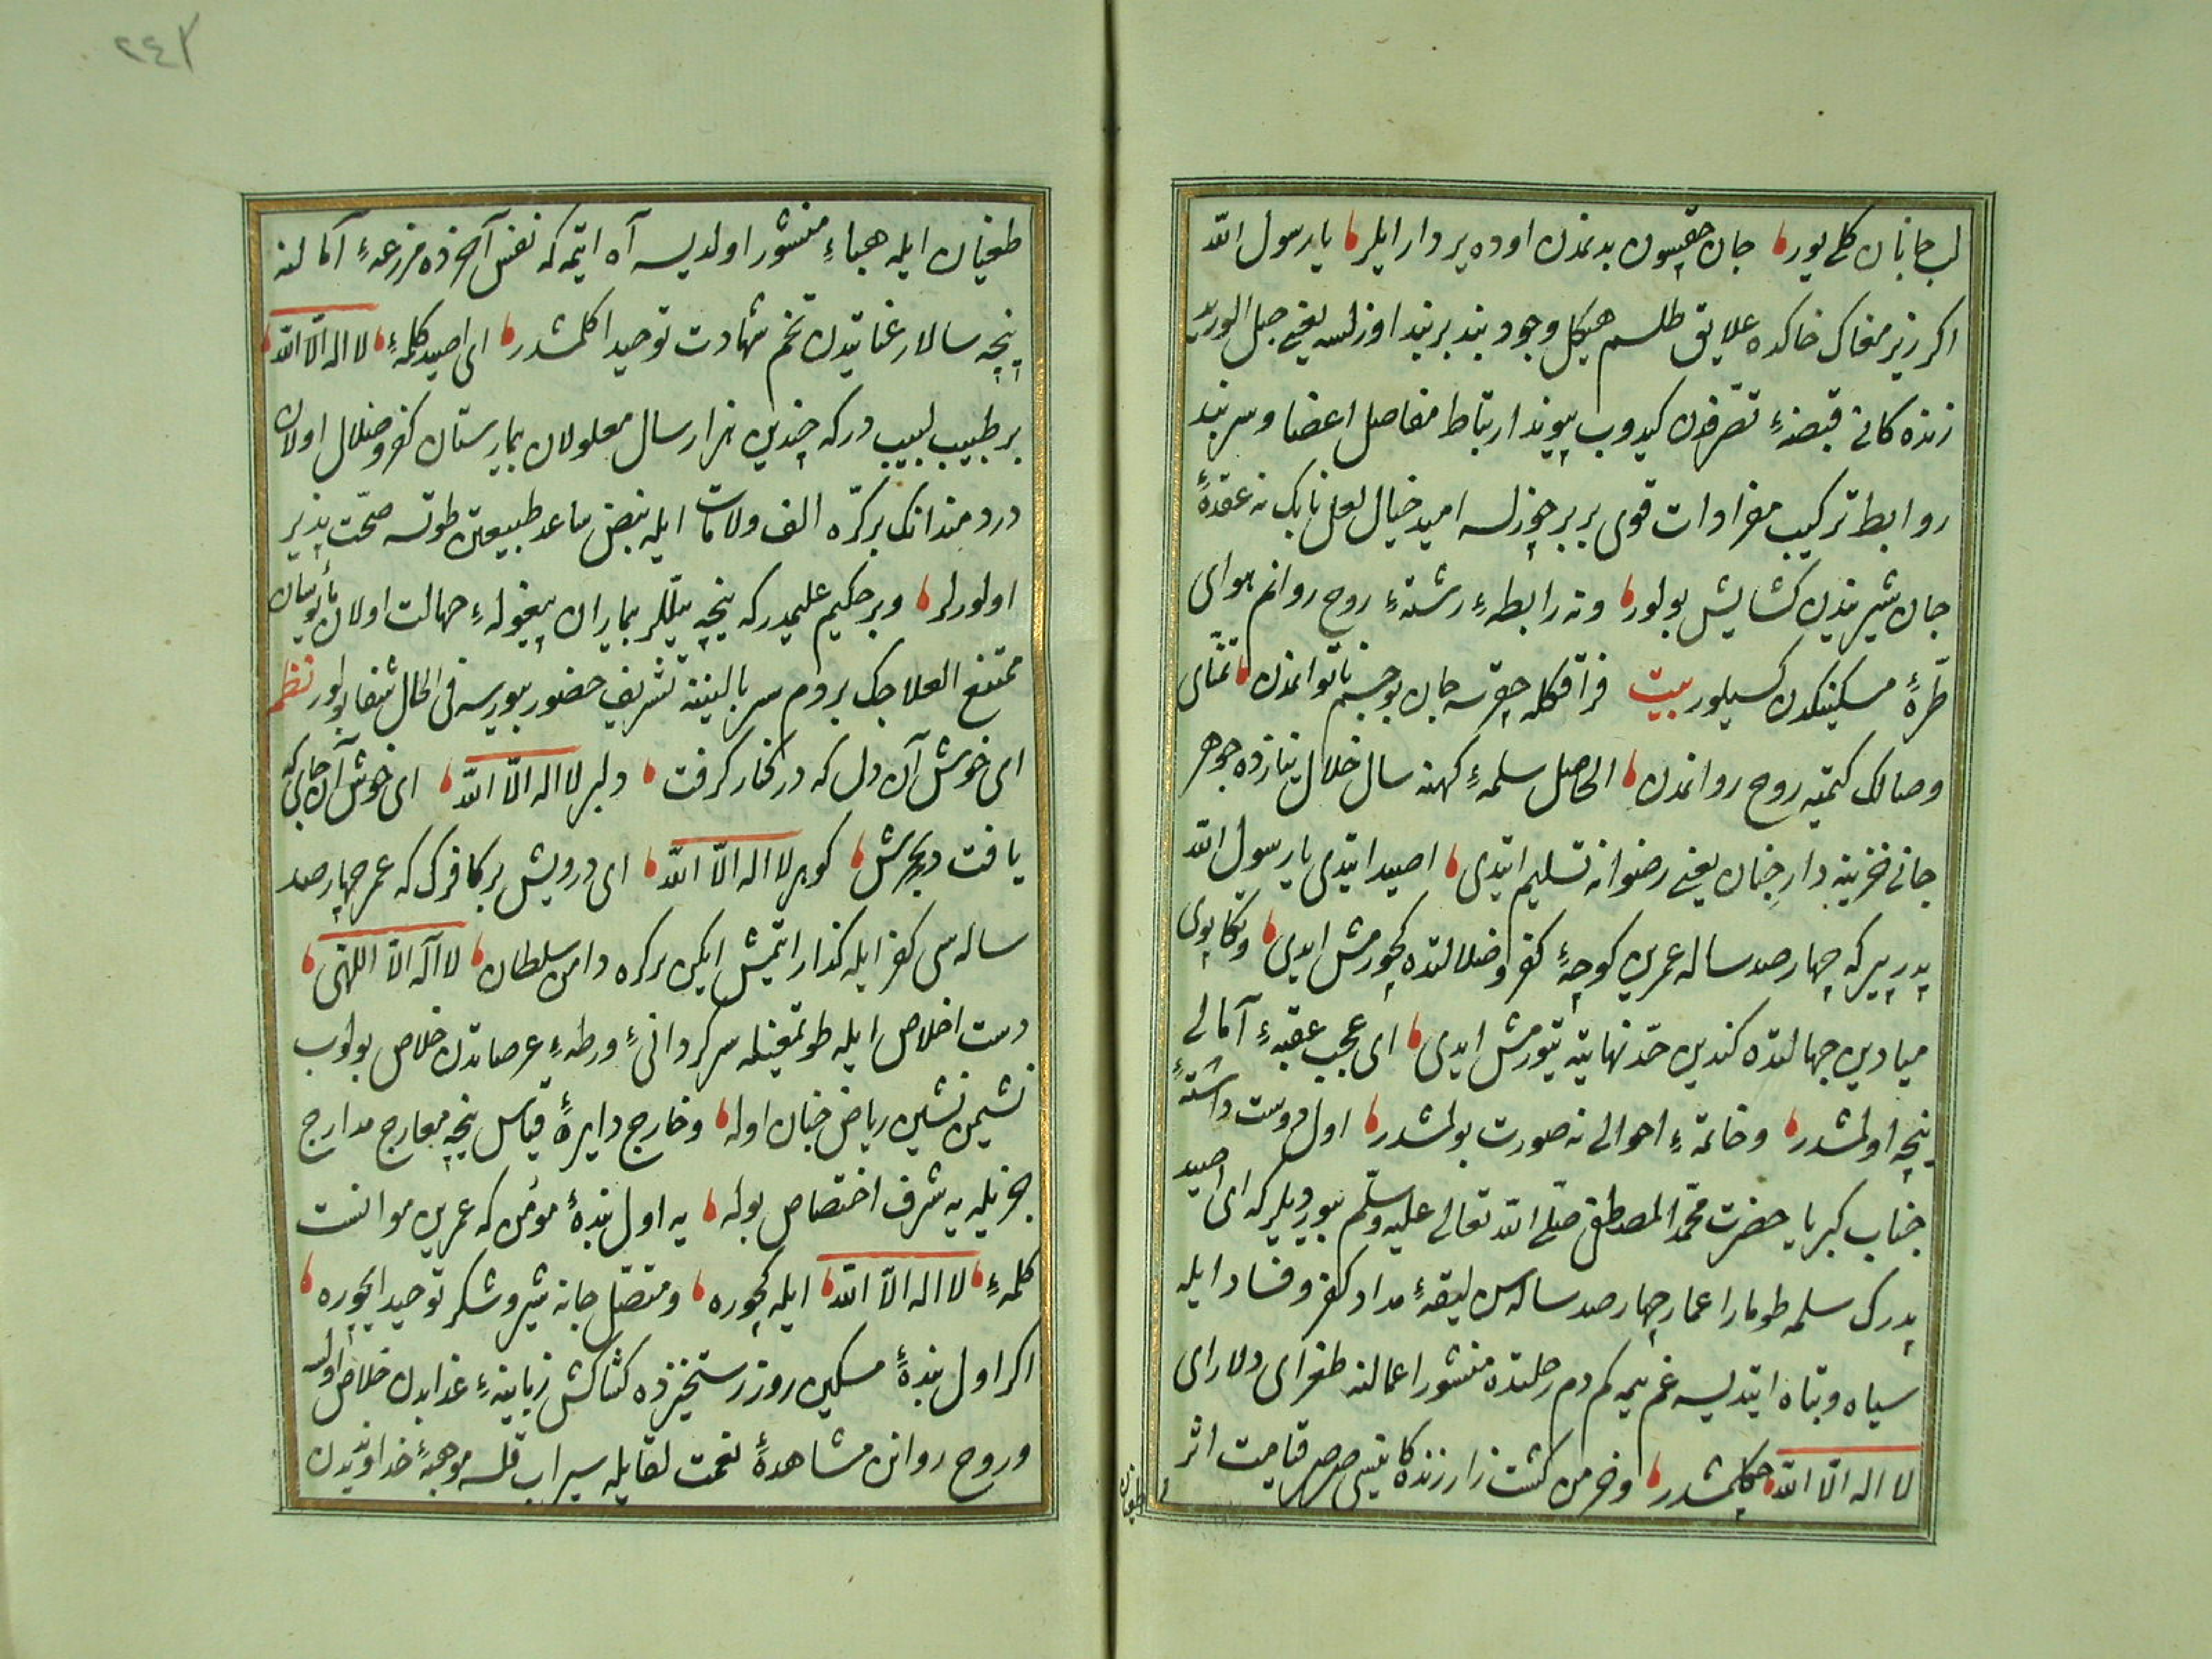 لب جانان كلى يور جان حقيسون بدنمدن اوده پر دار ايلر يا رسول الله
اكر زير مغاك خاكده علايق طلسم هيكل وجود بند بربند اوزلسه يعنى حبل الوريد
زنده كانى قبضهٔ تصرفدن كيدوب پيوند ارتباط مفاصل اعضا و سربند
روابط تركيب مفرادات قوى بربر چوزلسه اميد خيال لعل نابك نه عقدهٔ
جان شيريندن كشايش بولور ونه رابطهٔ رشتهٔ روح روانم هواى
طرّهٔ مسكينكدن كسيلور بيت فراقكله چقرسه جان بو جسم ناتواندن تمنّاى
وصالك كيتميه روح رواندن الحاصل سلمهٔ كهنه سال خلال نيازده جوهر
جانى خزينه دارِ جنان يعنى رضوانه تسليم ايتدى اصيد ايتدى يا رسول الله
پدر پيركه چهارصد ساله عمرين كوچهٔ كفر و ضلالتده كچورمش ايدى وتكاپوى
ميادين جهالتده كندين حدّ نهايته يتورمش ايدى اى عجب عقبهٔ آمالى
نيچه اولمشدر وخاتمهٔ احوالى نه صورت بولمشدر اول دوست داشتهٔ
جناب كبريا حضرت محمّد المصطفى صلّى الله تعالى عليه وسلّم بيورديلر كه اى اصيد
پدرك سلمه طومار اعمار چهارصد ساله سن ليقهٔ مداد كفر و فساد ايله
سياه وتباه ايتديسه غم يمه كم دم رحلتده منشور اعمالنه طغراى دلاراى
لا اله الّا الله چكلمشدر وخرمن كشت زار زنده كانيسى صرصر قيامت اثر
طغيان
طغيان ايله هباءِ منشور اولديسه آه ايتمه كه نفس آخرده مزرعهٔ آمالنه
نيچه سالار عنايتدن تخم شهادت توحيد اكلمشدر اى اصيد كلمهٔ لا اله الّا الله
بر طبيب لبيب دركه چندين هزار سال معلولان بيمارستان كفر و ضلال اولان
دردمندانك بركرّه الف ولامات ايله نبض ساعد طبيعتن طوتسه صحّت پذير
اولورلر وبر حكيم عليمدركه نيچه ييللر بيماران پيغولهٔ جهالت اولان مأيوسان
ممتنع العلاجك بردم سر بالينينه تشريف حضور بيورسه فى الحال شفا بولور نظم
اى خوش آن دل كه در كنار كرفت دلبر لا اله الّا الله اى خوش آن جان كه
يافت در بحرش كوهر لا اله الّا الله اى درويش بر كافرك كه عمر چهارصد
ساله سى كفر ايله كذار ايتمش ايكن بركره دامن سلطان لا اله الّا اللهى
دست اخلاص ايله طوتمغيله سركردانىٔ ورطهٔ عرصاتدن خلاص بولوب
نشيمن نشين رياض جنان اوله وخارج دايرهٔ قياس نيچه معارج مدارج
جزيله يه شرف اختصاص بوله يه اول بندهٔ مؤمن كه عمرين موانست
كلمهٔ لا اله الّا الله ايله كچوره ومتصّل جانه شير و شكر توحيد ايچوره
اكر اول بندهٔ مسكين روز رستخيزده كشاكش زبانيهٔ عذابدن خلاص اولسه
وروح روانن مشاهدهٔ نعمت لقايله سيراب قلسه موهبهٔ خداونديدن